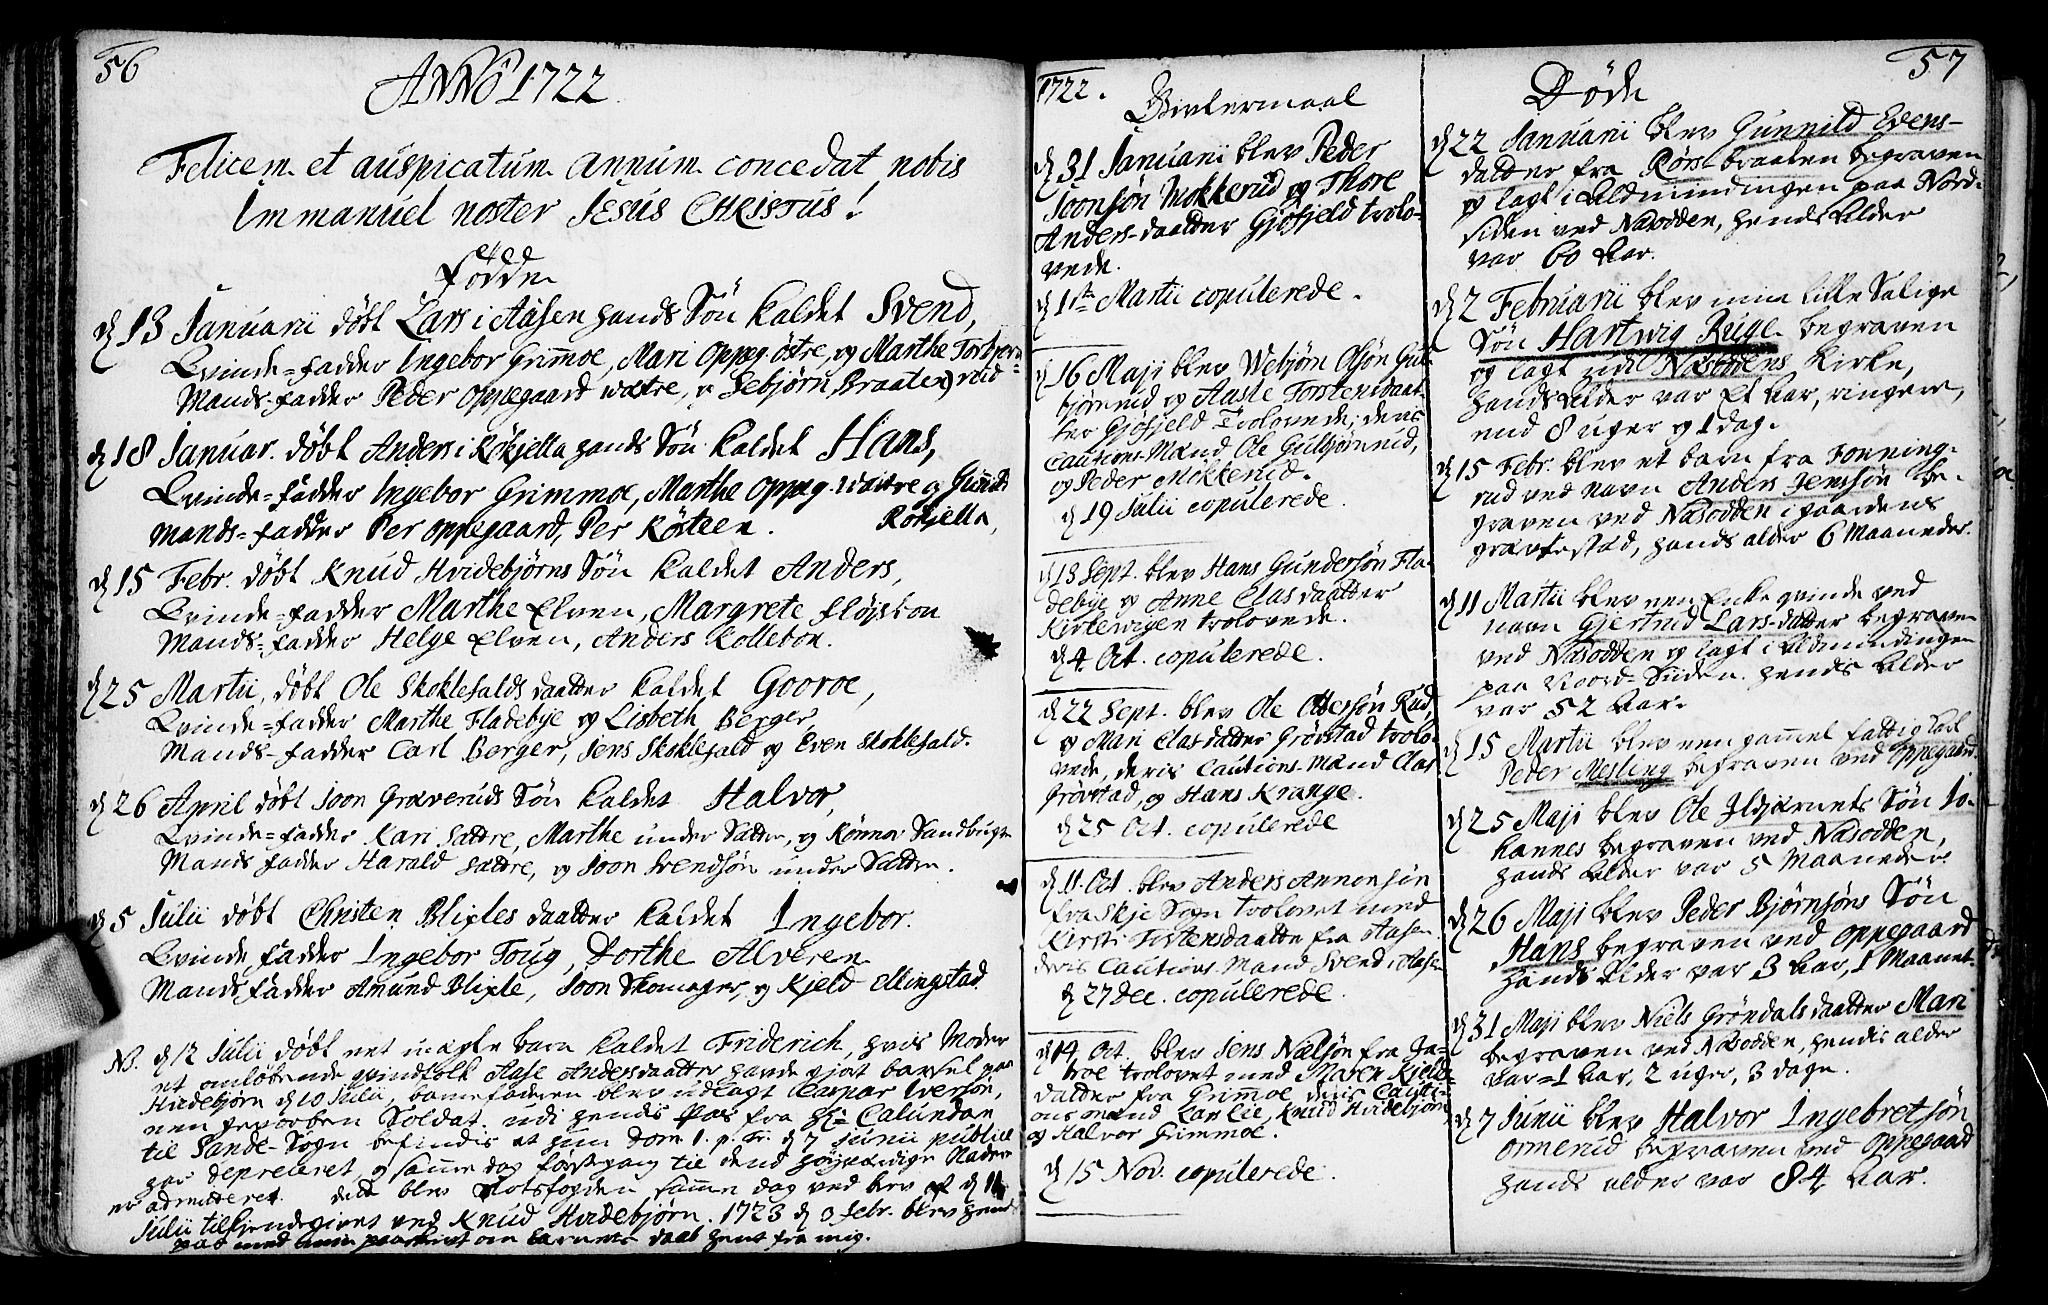 56
ANNO 1722
Felicem et auspicatum annum concedat nobis
Immanuel noster JESUS CHRISTUS!
Fødde
d 13 Januarii døbt Lars i Aasen hands Søn kaldet Svend,
Qvinde-fadder Ingebor Grimmoe, Mari Oppeg. østre, og Marthe Torbjørn-
Mands-fadder Peder Oppegaard wæstre, og Sebjørn Braaten) rud
d 18 Januar. døbt Anders i Røkjella hands Søn kaldet Hans,
Qvinde-fadder Ingebor Grimmoe, Marthe Oppeg. wæstre og Gunnild
Mands-fadder Per Oppegaard, Per Kørteen. Røkjella,
d 15 Febr. døbt Knud Hvidebjørns Søn kaldet Anders,
Qvinde-fadder Marthe Elven, Margrete Fløjsbon
Mands-fadder Helge Elven, Anders Kollebon.
d 25 Martii, døbt Ole Skoklefalds daatter kaldet Gooroe,
Qvinde-fadder Marthe Fladebye og Lisbeth Berger,
Mands-fadder Carl Berger, Jens Skoklefald og Even Skoklefald.
d 26 April døbt Joon Graveruds Søn kaldet Halvor,
Qvinde-fadder Kari Sættre, Marthe under Sættre, og Rønnov Sandbugten
Mands fadder Harald Sættre, og Joon Svendsøn under Sættre.
d 5 Julii døbt Christen Blixles daatter kaldet Ingebor.
Qvinde fadder Ingebor Toug, Dorthe Alveren
Mands fadder Amund Blixle, Joon Skomager, og Kjeld Ellingstad.
NB. d 12 Julii døbt eet uægte barn kaldet Friderich, hvis Moder
et omløbende qvindfolk Aase Andersdaatter havde gjort barsel paa
Hvidebjørn d 10 Julii, barnefaderen blev udlagt Caspar Iversøn,
een geworben Soldat. udi hendes Pas fra Hr. Calundan
til Sande-Sogn befindis at hun Dom. 1. p. Tr. d 7 Junii publice
har depreceret, og samme dag første gang til dend højværdige Nadvere
er admitteret. dette blev Slotsfogden samme dag ved brev af d 11
Julii tilkjendegivet ved Knud Hvidebjørn. 1723 d 3 Febr. blev hendes
pas med min paaskrivt om barnets daab hent fra mig.
1722.
Givtermaal
d 31 Januarii blev Peder
Joonsøn Mokkerud og Thore
Anders-daatter Gjøfjeld trolo-
vede.
d 1ste Martii copulerede.
d 16 Maji blev Webjørn Olsøn Gul-
bjørnrud og Aaste Torstensdaat-
ter Gjøfjeld Trolovede; deris
Cautions-Mænd Ole Gulbjørnrud,
og Peder Mokkerud.
d 19 Julii copulerede.
d 13 Sept. blev Hans Gundersøn Fla-
debye og Anne Clasdaatter
Kirkewigen trolovede.
d 4 Oct. copulerede.
d 22 Sept. blev Ole Ottersøn Rud,
og Mari Clasdatter Grøvstad trolo-
vede, deris Cautions-Mænd Clas
Grøvstad, og Hans Krange.
d 25 Oct. copulerede
d 11. Oct. blev Anders Annonsøn
fra Skje Sogn trolovet med
Kirsti Torstensdaatter fra Aasen
deris Cautions-Mand Svend i Aasen
d 27 Dec. copulerede.
d 14 Oct. blev Jens Nielsøn fra Ja-
troe trolovet med Maren Kjelds-
datter fra Grimmoe deris Cauti-
onsmænd Lars Lie, Knud Hvidebjørn
og Halvor Grimmoe.
d 15 Nov. copulerede.
57
Døde
d 22 Januarii blev Gunnild Evens-
datter fra Rørs-braaten begraven
og lagt i Aldmindingen paa Nord-
siden ved Næsodden, hends Alder
var 60 Aar.
d 2 Februarii blev min lille Salige
Søn Hartwig Ruge begraven
og lagt udi Næsoddens Kirke,
hands Alder var Et Aar, ringere,
end 8 uger og 1 dag.
d 15 Febr. blev et barn fra Fonning-
rud ved navn Anders Jenssøn be-
graven ved Næsodden i gaardens
gravfestæd, hands alder 6 Maaneder.
d 11 Martii blev een Enke qvinde ved
navn Gjertrud Lars-datter begraven
ved Næsodden og lagt i Aldmindingen
paa Noord-Siiden. hends Alder
var 52 Aar.
d 15 Martii blev een gammel fattig Karl
Peder Mesling begraven ved Oppegaard.
d 25 Maji blev Ole Ildjærnets Søn Jo-
hannes begraven ved Næsodden,
hands Alder var 5 Maaneder
d 26 Maji blev Peder Bjørnsøns Søn
Hans begraven ved Oppegaard
hands Alder var 3 Aar, 1 Maanet.
d 31 Maji blev Niels Grøndals daatter Mari
begraven ved Næsodden, hendis alder
var 1 Aar, 2 uger, 3 dage.
d 7 Junii blev Halvor Ingebretsøn
Ormerud begraven ved Oppegaard
hands alder var 84 Aar.